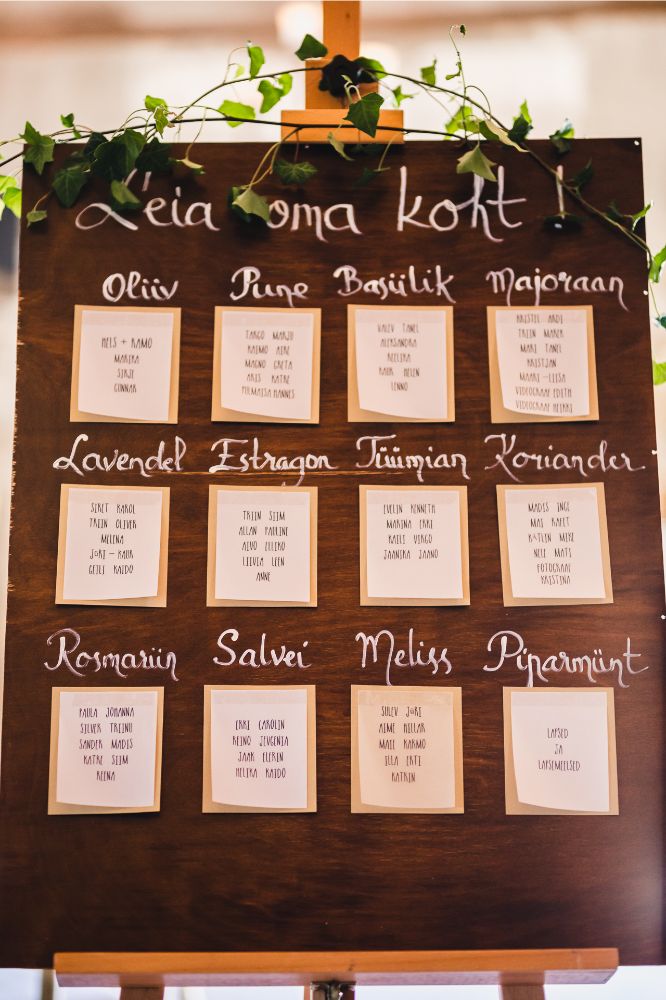 Leia oma koht!
Oliiv
HELS + RAIMO
MARIKA
SIRJE
GUNNAR
Pune
TARGO MARJU
RAIMO AIRE
MAGNO GRETA
ARIS KATRE
PULMAISA HANNES
Basiilik
VALEV TANEL
ALEKSANDRA
KAUR HELEN
LENNO
Majoraan
KRISTEL ARDI
TRIIN MAREK
MARI TANEL
KRISTJAN
MAARI-LIISA
VIDEOGRAAF EDITH
VIDEOGRAAF HEIKKI
Lavendel
SIRET KAROL
TRIIN OLIVER
MELENA
JÜRI-KAUR
GEILI KAIDO
Estragon
TRIIN SIIM
ALLAN PAULINE
AIVO ELLIKO
LIIVIA LEEN
ANNE
Tüümian
EVELIN KENNETH
MARINA ERKI
KAILI VIRGO
JAANIKA JAANO
Koriander
MADIS INGE
MAI RAFET
KÄTLIN MIKE
NELE MATS
FOTOGRAAF
KRISTINA
Rosmariin
PAULA JOHANNA
SILVER TRIINU
SANDER MADIS
KATRE SIIM
REENA
Salvei
ERKI CAROLIN
REINO JEVGENIA
JAAK ELERIN
HELIKA KAIDO
Meliss
SULEV JÜRI
AIME HILLAR
MAIE KARMO
ÜLLA ERTI
KATRIN
Piparmünt
LAPSED
JA
LAPSEMEELSED